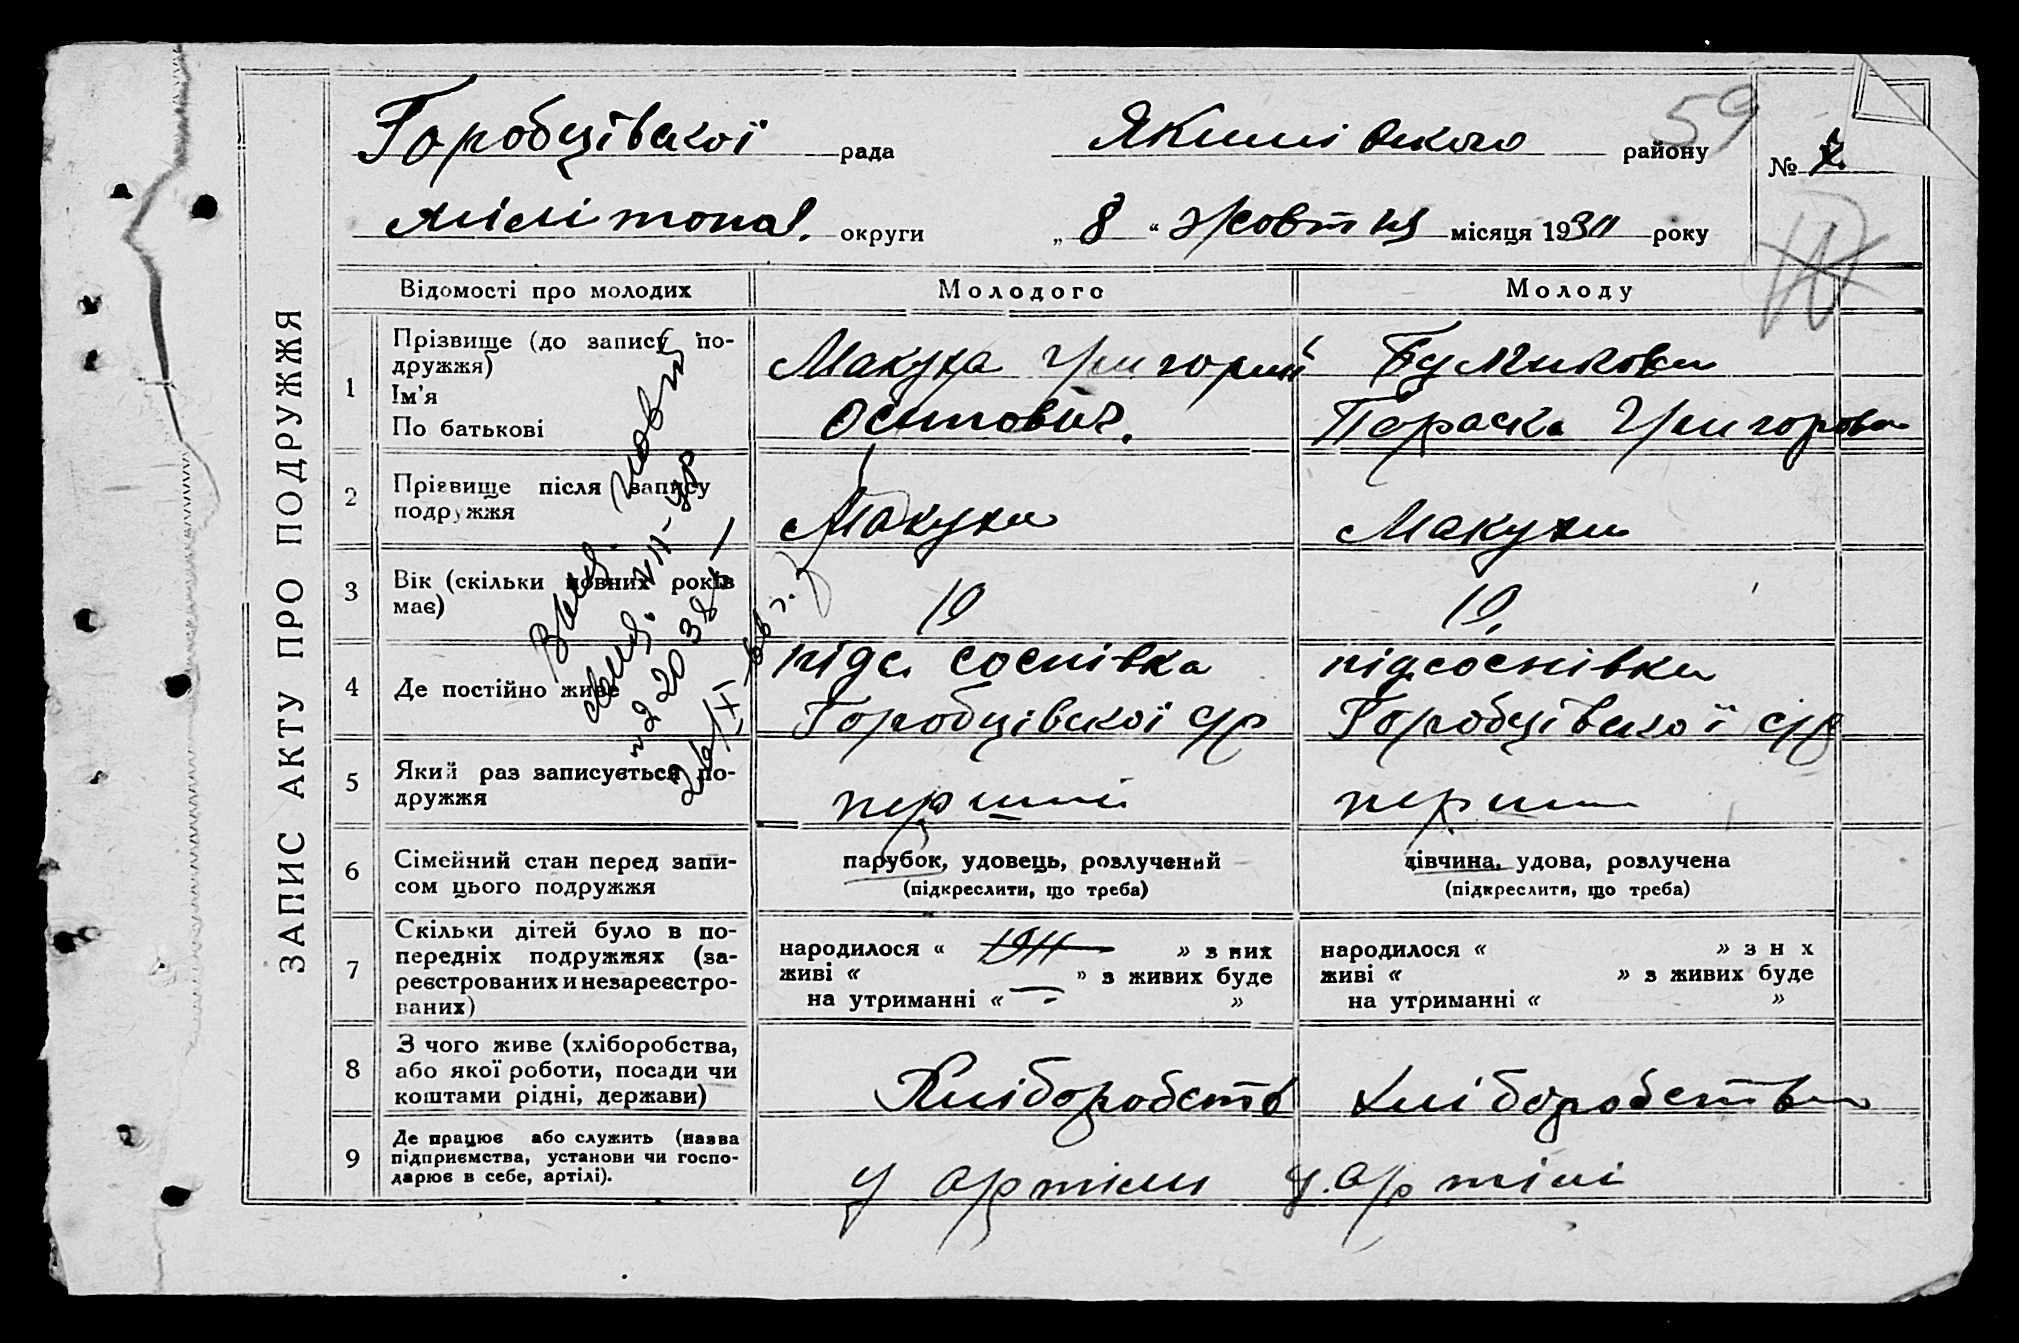 59
Горобцівської рада Якимівського району № 7
Мілітопол. округи „ 8 “ Жовтня місяця 1930 року
ЗАПИС АКТУ ПРО ПОДРУЖЖЯ
Відомості про молодих Молодого Молоду
1 Прізвище (до запису по-
дружжя)
Ім'я
По батькові
Макуха Григорий
Осипович.
Параска Григоров
2 Прізвище після запису
подружжя
Макуха
Макуха
3 Вік (скільки повних років
має)
19
19.
4 Де постійно живе
підс. соснівка
Горобцівскої с/р
підсоснівка
Горобцівскої с/р
5 Який раз записується по-
дружжя
перший
перши
6 Сімейний стан перед запи-
сом цього подружжя
парубок, удовець, розлучений
(підкреслити, що треба)
дівчина, удова, розлучена
(підкреслити, що треба)
7 Скільки дітей було в по-
передніх подружжях (за-
реєстрованих и незареєстро-
ваних)
народилося « 1911 » з них
живі « » з живих буде
на утриманні « — »
народилося « » з н х
живі « » з живих буде
на утриманні « »
8 З чого живе (хліборобства,
або якої роботи, посади чи
коштами рідні, держави)
Хліборобств
хліборобства
9 Де працює або служить (назва
підприємства, установи чи госпо-
дарює в себе, артілі).
у артили
у артілі
Выд. повт.
свид. VII-УР
№ 220384
26/XI-66 г.